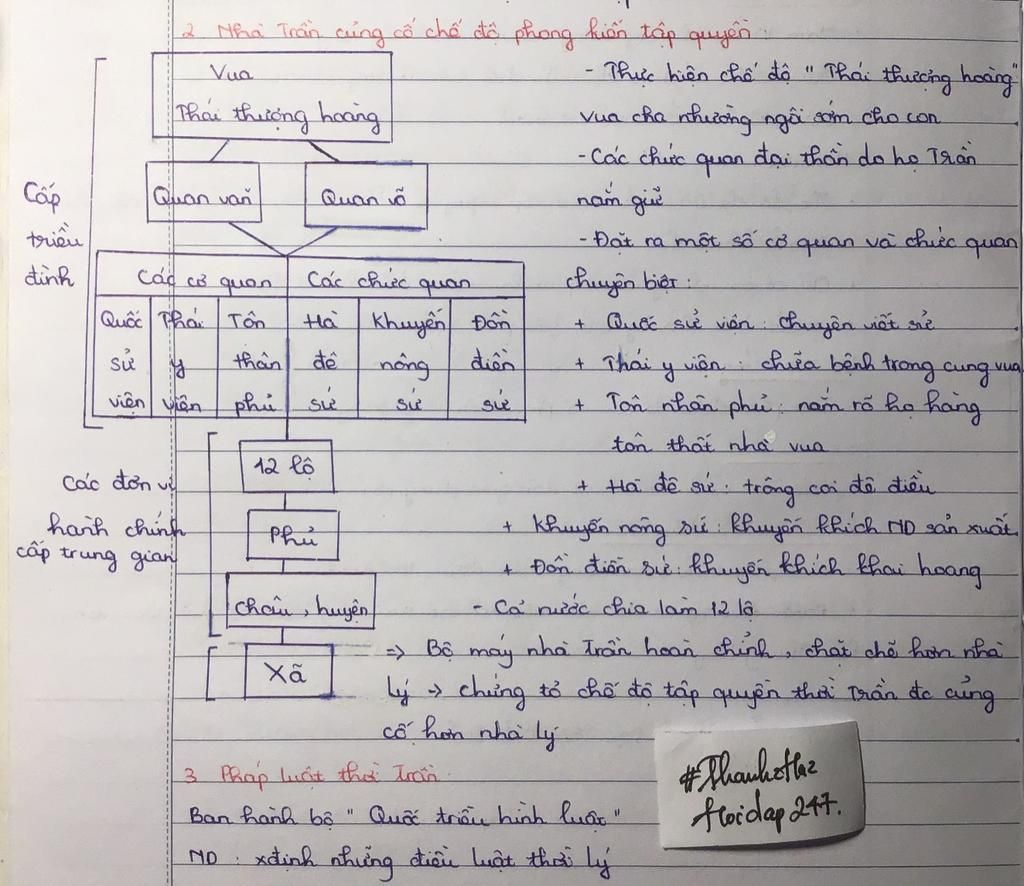 2 Nhà Trần củng cố chế độ phong kiến tập quyền :
Vua
Thái thượng hoàng
Quan văn
Quan võ
Cấp
triều
đình
Các cơ quan
Các chức quan
Quốc sử viện
Thái y viện
Tôn thân phủ
Hà đê sứ
Khuyến nông sứ
Đồn điền sứ
12 lộ
Các đơn vị
hành chính
cấp trung gian
Phủ
Châu, huyện
Xã
- Thực hiện chế độ " Thái thượng hoàng"
Vua cha nhường ngôi sớm cho con
- Các chức quan đại thần do họ Trần
nắm giữ
- Đặt ra một số cơ quan và chức quan
chuyên biệt :
+ Quốc sử viện : chuyên viết sử
+ Thái y viện : chữa bệnh trong cung vua
+ Tôn nhân phủ : nắm rõ họ hàng
tôn thất nhà vua
+ Hà đê sứ : trông coi đê điều
+ Khuyến nông sứ : khuyến khích ND sản xuất.
+ Đồn điền sứ : khuyến khích khai hoang
- Cả nước chia làm 12 lộ
=> Bộ máy nhà Trần hoàn chỉnh, chặt chẽ hơn nhà
Lý → chứng tỏ chế độ tập quyền thời Trần đc củng
cố hơn nhà Lý
3 Pháp luật thời Trần.
Ban hành bộ " Quốc triều hình luật "
ND : xđịnh những điều luật thời lý
hoidap247.